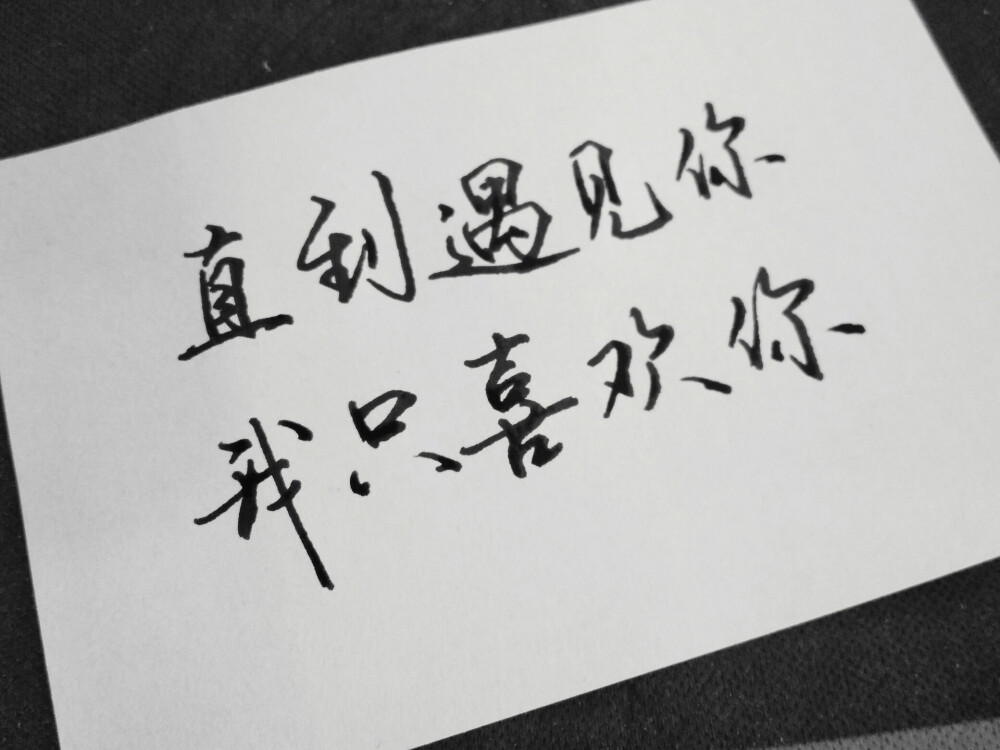 直到遇见你
我只喜欢你